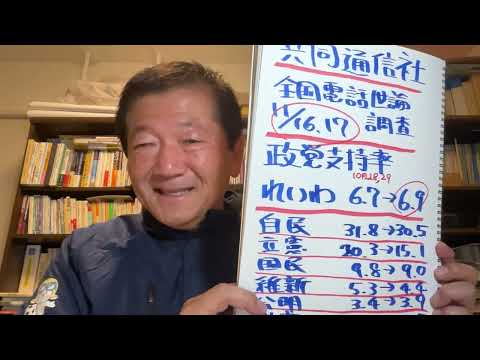 共同通信社
全国電話世論
11/16.17 調査
政党支持率
10月28,29
れいわ 6.7→6.9
自民 31.8→30.5
立憲 20.3→15.1
国民 9.8→9.0
維新 5.3→4.4
公明 3.4→3.9